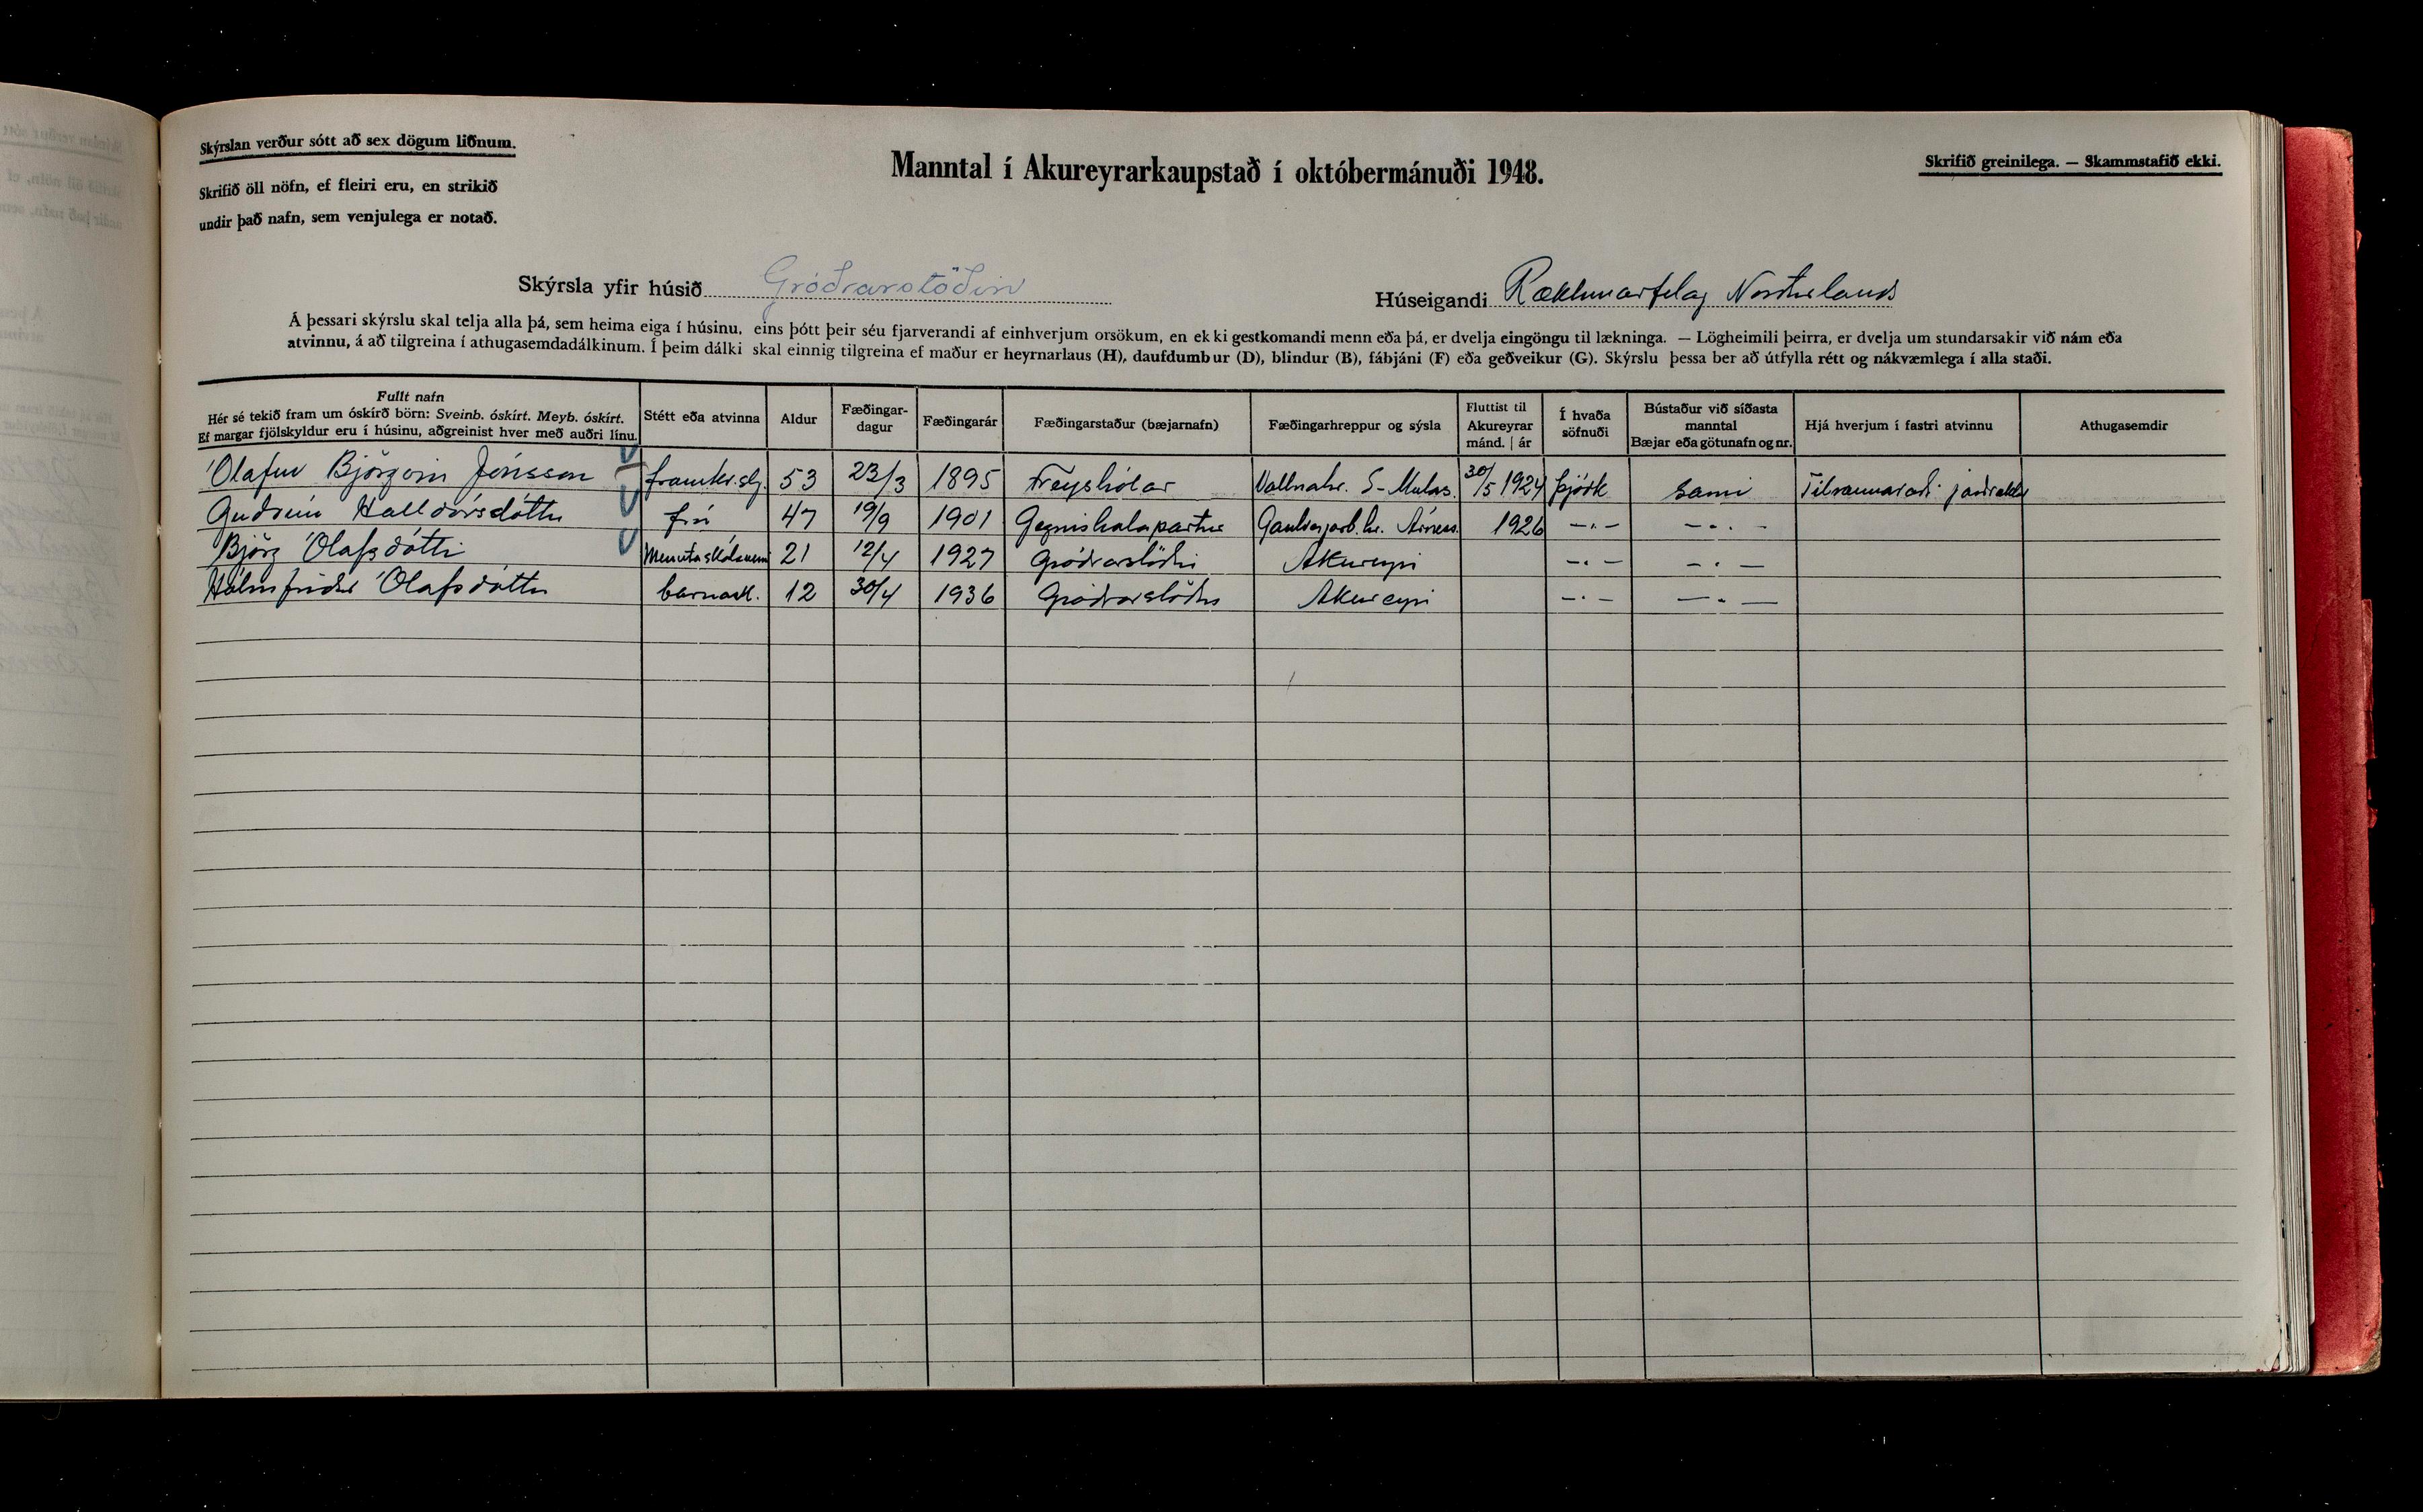 Skýrslan verður sótt að sex dögum liðnum.
Skrifið öll nöfn, ef fleiri eru, en strikið
undir það nafn, sem venjulega er notað.
Manntal í Akureyrarkaupstað í októbermánuði 1948.
Skrifið greinilega. — Skammstafið ekki.
Skýrsla yfir húsið Gróðrarstöðin
Húseigandi Ræktunarfélag Norðurlands
Á þessari skýrslu skal telja alla þá, sem heima eiga í húsinu, eins þótt þeir séu fjarverandi af einhverjum orsökum, en ekki gestkomandi menn eða þá, er dvelja eingöngu til lækninga. — Lögheimili þeirra, er dvelja um stundarsakir við nám eða
atvinnu, á að tilgreina í athugasemdadálkinum. Í þeim dálki skal einnig tilgreina ef maður er heyrnarlaus (H), daufdumbur (D), blindur (B), fábjáni (F) eða geðveikur (G). Skýrslu þessa ber að útfylla rétt og nákvæmlega í alla staði.
Fullt nafn
Hér sé tekið fram um óskírð börn: Sveinb. óskírt. Meyb. óskírt.
Ef margar fjölskyldur eru í húsinu, aðgreinist hver með auðri línu.
Stétt eða atvinna
Aldur
Fæðingar-
dagur
Fæðingarár
Fæðingarstaður (bæjarnafn)
Fæðingarhreppur og sýsla
Fluttist til
Akureyrar
mánd. | ár
Í hvaða
söfnuði
Bústaður við síðasta
manntal
Bæjar eða götunafn og nr.
Hjá hverjum í fastri atvinnu
Athugasemdir
Ólafur Björgvin Jónsson framkv.stj. 53 23/3 1895 Freyshólar Vallnahr. S-Múlas. 30/5 1924 þjóðk sami
Guðrún Halldórsdóttir frú 47 19/9 1901 Gegnishólapartur Gaulverjarb.hr. Árness. 1926 —"— —"—
Björg Ólafsdóttir Menntaskólanemi 21 12/4 1927 Gróðrarstöðin Akureyri —"— —"—
Hólmfríður Ólafsdóttir barnask. 12 30/4 1936 Gróðrarstöðin Akureyri —"— —"—